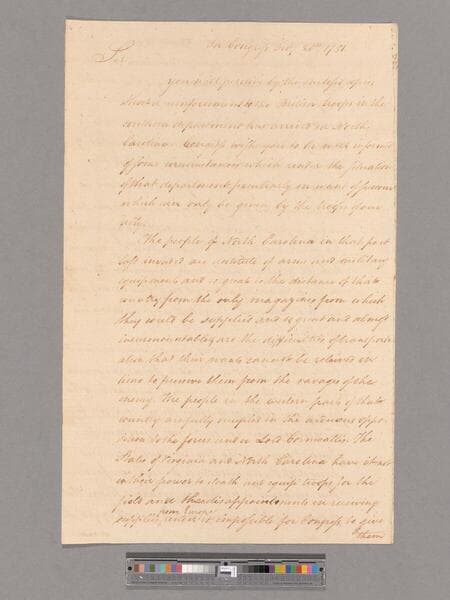 In Congress Feby 20th 1781
Sir,
you will perceive by the enclosed
that a reinforcement to the British troops in the
southern department has arrived in North
Carolina. Congress wish you to be well informed
of some circumstances which render the situation
of that department peculiarly in want of succours
which can only be given by the troops of our
ally.
The people of North Carolina in that part
last invaded are destitute of arms and military
equipments and so great is the distance of that
country from the only magazines from which
they could be supplied and so great and almost
insurmountable are the difficulties of transport-
ation that their wants cannot be relieved in
time to preserve them from the ravages of the
enemy. The people in the western parts of that
country are fully occupied in the arduous oppo-
sition to the force under Lord Cornwallis. The
States of Virginia and North Carolina have it not
in their power to cloath and equip troops for the
field and the disappointments in receiving
supplies from Europe render it impossible for Congress to give
them